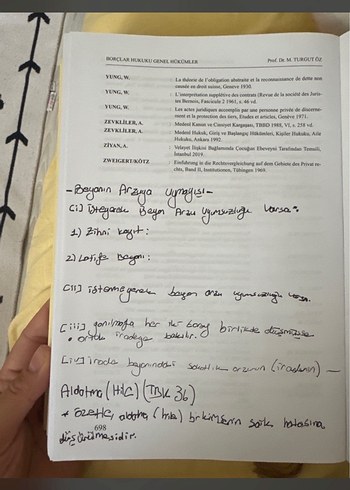 BORÇLAR HUKUKU GENEL HÜKÜMLER Prof. Dr. M. TURGUT ÖZ
YUNG, W. : La théorie de l'obligation abstraite et la reconnaissance de dette non
causée en droit suisse, Genève 1930.
YUNG, W. : L'interprétation supplétive des contrats (Revue de la société des Juris-
tes Bernois, Fascicule 2 1961, s. 46 vd.
YUNG, W. : Les actes juridiques accomplis par une personne privée de discerne-
ment et la protection des tiers, Etudes et articles, Genève 1971.
ZEVKLİLER, A. : Medeni Kanun ve Cinsiyet Kargaşası, TBBD 1988, VI, s. 258 vd.
ZEVKLİLER, A. : Medeni Hukuk, Giriş ve Başlangıç Hükümleri, Kişiler Hukuku, Aile
Hukuku, Ankara 1992.
ZİYAN, A. : Velayet İlişkisi Bağlamında Çocuğun Ebeveyni Tarafından Temsili,
İstanbul 2019.
ZWEIGERT/KÖTZ : Einführung in die Rechtsvergleichung auf dem Gebiete des Privat re-
chts, Band II, Institutionen, Tübingen 1969.
- Beyanın Arzuya Uymayışı -
(i) İsteyerek Beyan Arzu Uyumsuzluğu Varsa:
1) Zihni kayıt:
2) Latife Beyanı:
(ii) istemeyerek beyan arzu uyumsuzluğu varsa.
(iii) yanılmaya her iki taraf birlikte düşmüşse
• ortak iradeye bakılır.
(iv) irade beyanındaki sakatlık arzunun (iradenin) —
Aldatma (Hile) (TBK 36)
* özetle, aldatma (hile) bir kimsenin saik hatasına
düşürülmesidir.
698